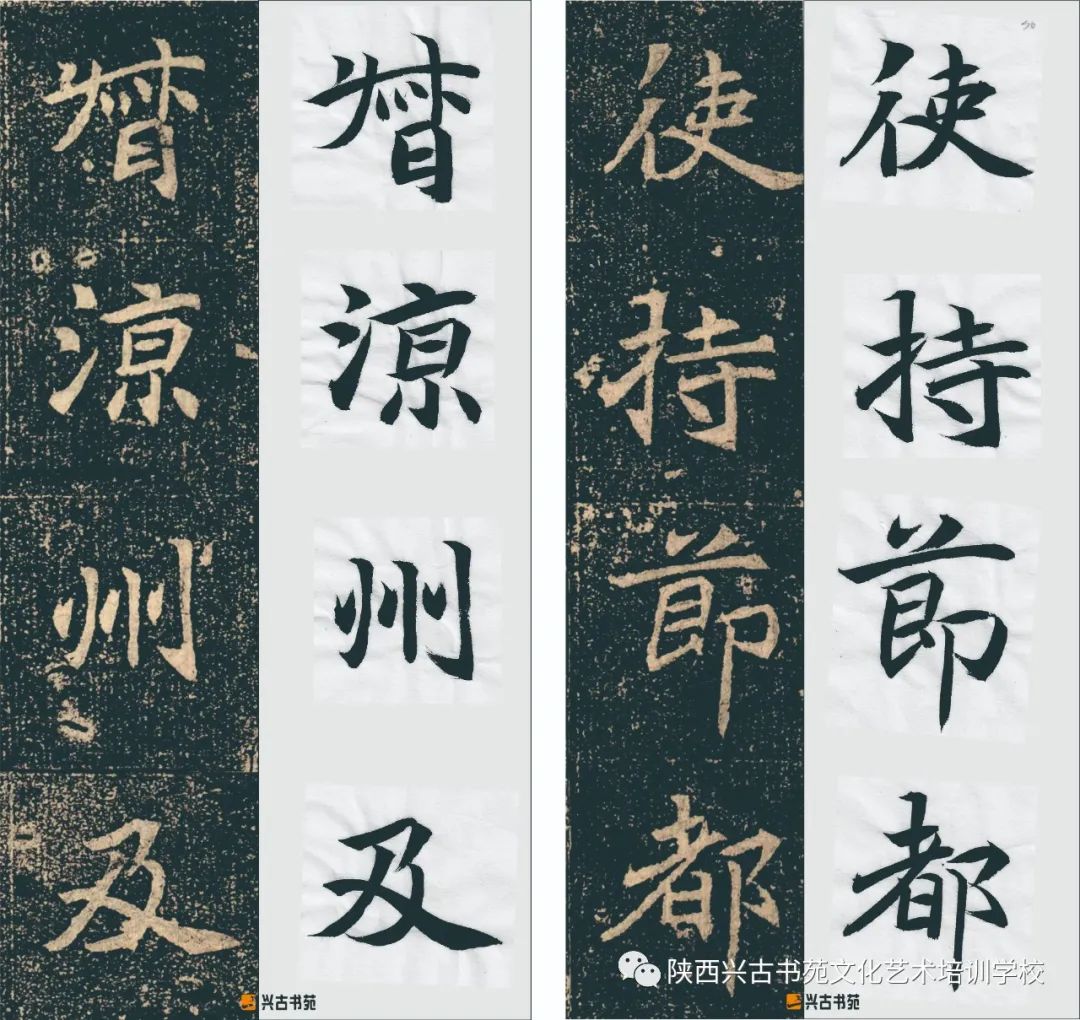 使持節都
使持節都
督涼州及
督涼州及
陕西兴古书苑文化艺术培训学校
兴古书苑
兴古书苑